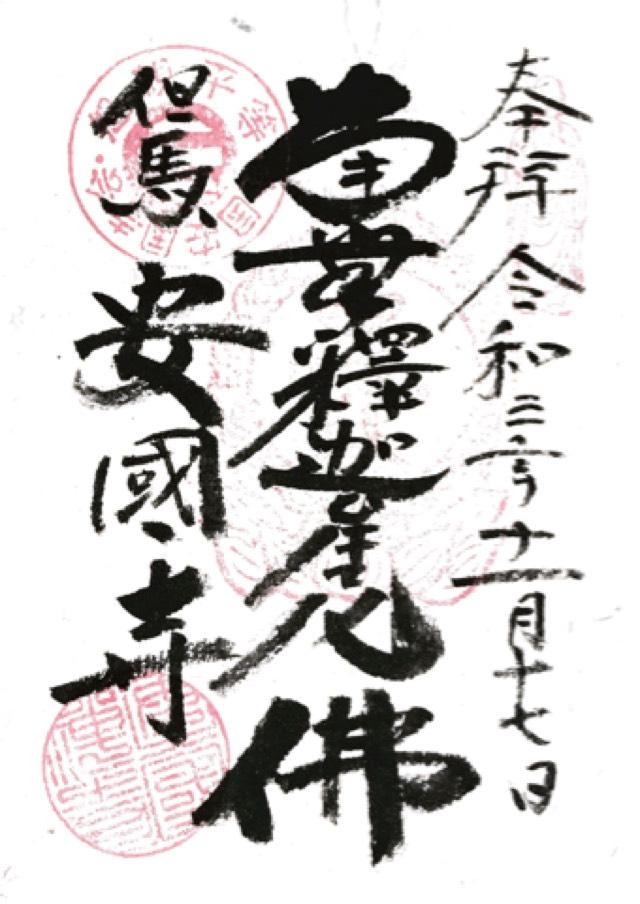 奉拝 令和三年十一月十七日
南無釋迦牟尼佛
但馬 安國寺